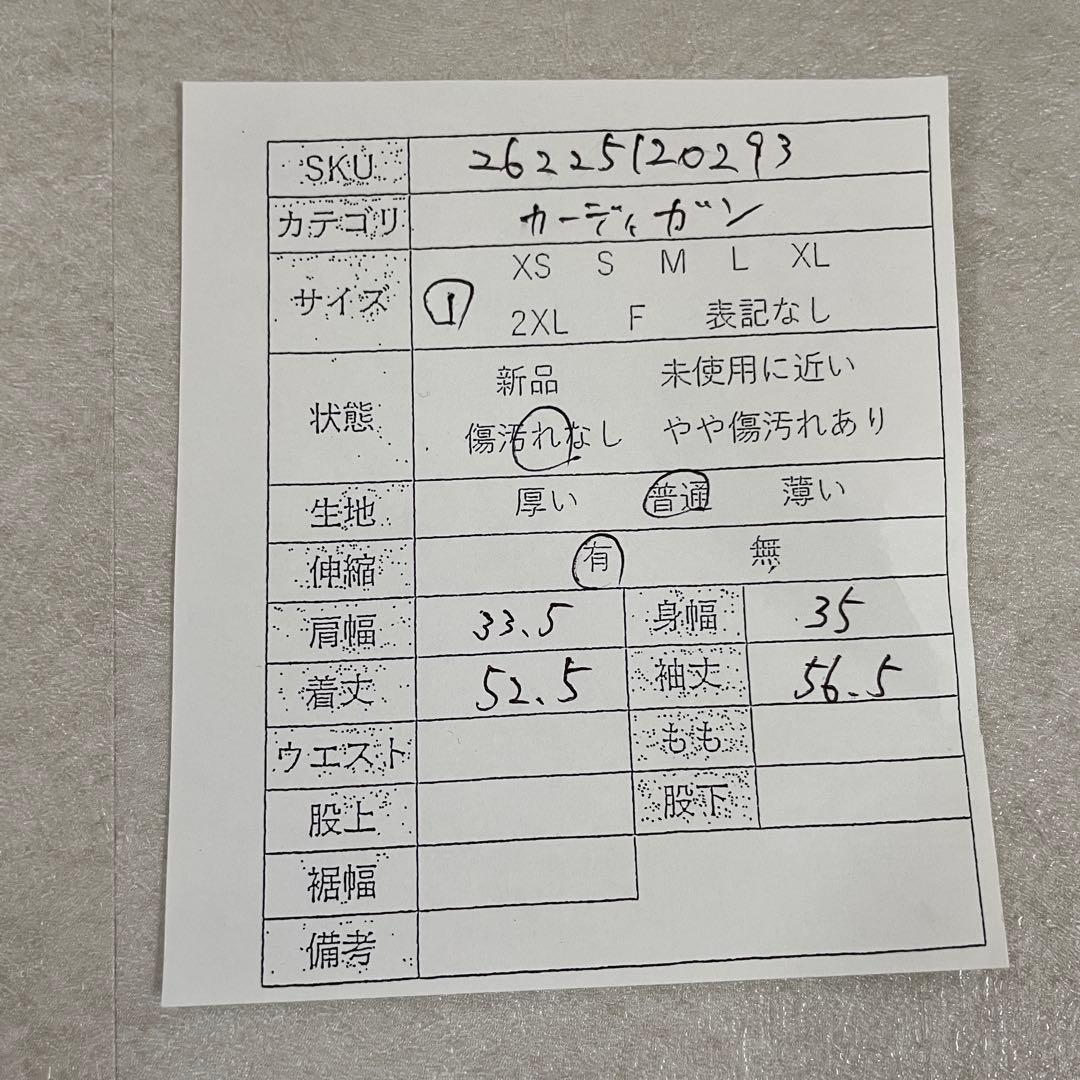 SKU 26225120293
カテゴリ カーディガン
XS S M L XL
サイズ ①
2XL F 表記なし
新品 未使用に近い
状態
傷汚れなし やや傷汚れあり
生地 厚い 普通 薄い
伸縮 有 無
肩幅 33.5 身幅 35
着丈 52.5 袖丈 56.5
ウエスト もも
股上 股下
裾幅
備考